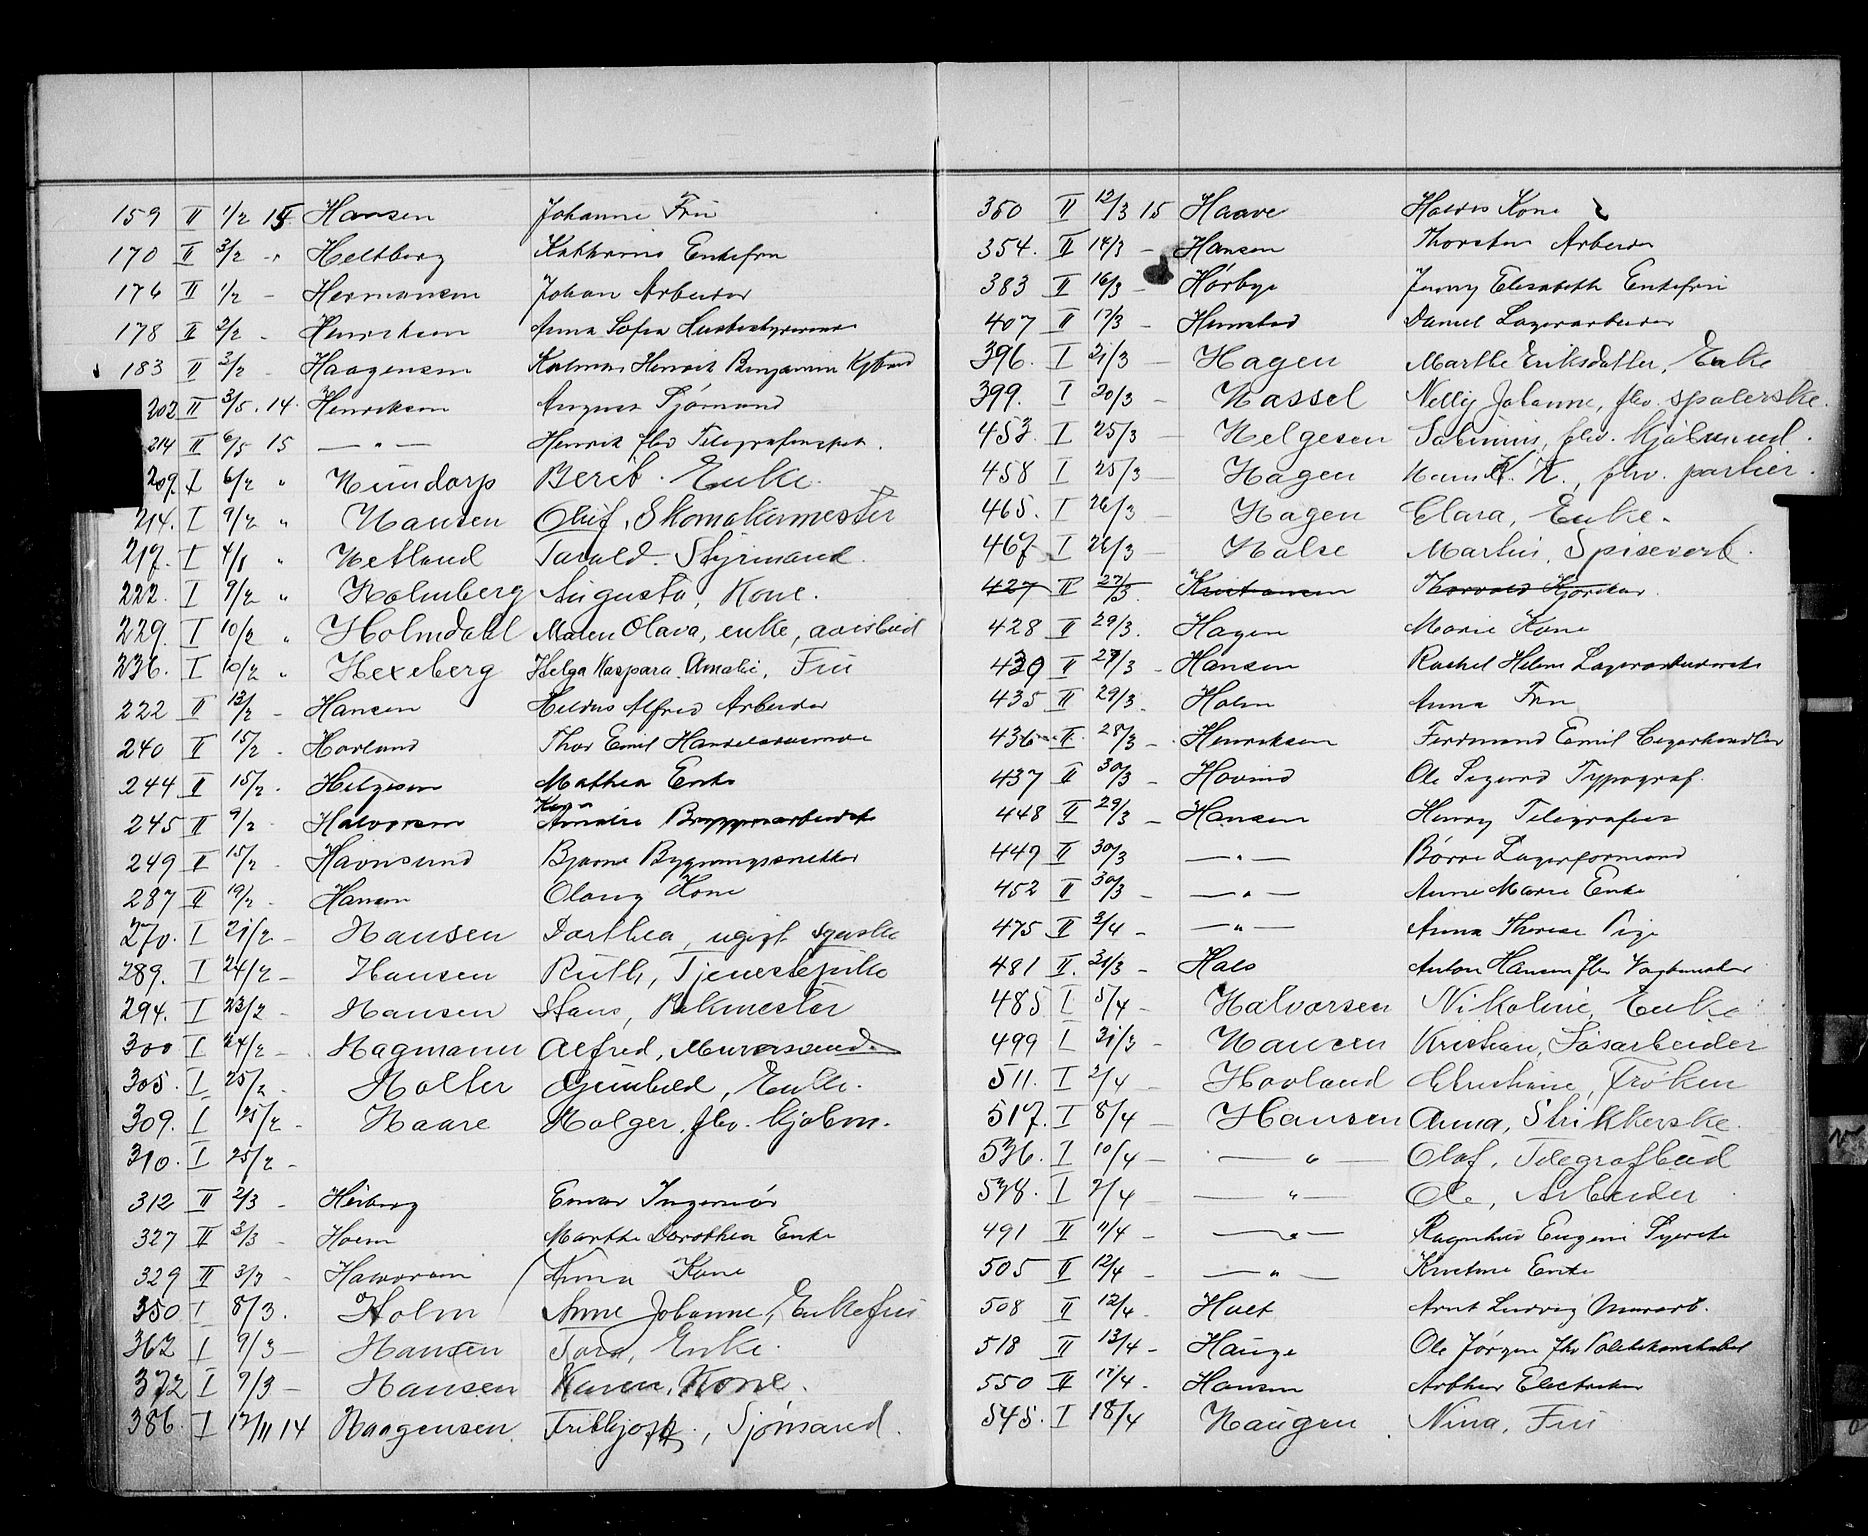 159 II 1/2 15 Hansen Johanne Fru
170 II 3/2 - Heltberg Kathrine Enkefru
176 II 1/2 - Hermansen Johan Arbeider
178 II 2/2 - Henriksen Anna Sofia Husbestyrerinde
183 II 3/2 - Haagensen Kalmar Henrik Benjamin
202 II 3/5. 14. Henriksen August Sjømand
214 II 6/5 15 —„— Henrik fhv Telegrafinspekt.
209. I 6/2 „ Berit. Enke.
214. I 9/2 „ Hansen Oluf, Skomakermester
217. I 4/1 „ Hetland Tarald. Styrmand.
222. I 9/2 „ Holmberg Augusta, Kone.
229. I 10/2 „ Holmdahl Maren Olava, enke, avisbud
236. I 10/2 „ Hexeberg Helga Kaspara Amalie, Fru
222 II 13/2 - Hansen Alfred Arbeider
240 II 15/2 - Hovland Thor Emil
244 II 15/2 - Helgesen Mathea Enke
245 II 9/2 - Halvorsen Amalie Bryggeriarbeiderske
249 II 15/2 - Havnsund Bjarne Bygningssnekker
287 II 19/2 - Hansen Olaug Kone
270. I 21/2 - Hansen Dorthea, ugift syerske
289. I 24/2 - Hansen Ruth, Tjenestepike
294. I 23/2 - Hansen Hans, Blikmester
300 I 24/2 - Hagmann Alfred, Murersvend.
305. I 25/2 - Holter Gunhild, Enke.
309. I 25/2 - Haare Holger, fhv. kjøbm.
310. I 25/2 -
312 II 2/3 - Heiberg Einar Ingeniør
327 II 3/3 - Holm Marthe Dorothea Enke
329 II 3/3 - Halvorsen Anna Kone
350 I 8/3. Holm Anne Johanne, Enkefru
362 I 9/3 - Hansen Tora, Enke.
372 I 9/3 - Hansen Karen, Kone.
386. I 12/11 14 Haagensen. Frithjoff, Sjømand.
350 II 12/3 15 Haave Haldis Kone
354. II 14/3 - Hansen Thorsten Arbeider
383 II 16/3 - Hørbye Jenny Elisabeth Enkefru
407 II 17/3 - Hemstad Daniel Lagerarbeider
396. I 21/3 - Hagen Marthe Eriksdatter, Enke
399. I 20/3 - Hassel Nelly Johanne, fhv. spolerske.
453. I 25/3 - Helgesen fhv. kjøbmand.
458 I 25/3 - Hagen K., fhv. portier.
465. I 26/3 - Hagen Clara, Enke.
467 I 26/3 - Halse Martin, Spisevert.
427 II 27/3. Kristiansen Thorvald Kjørekar.
428 II 29/3. Hagen Marie Kone
430 II 27/3 - Hansen Rachel Helene Lagerarbeiderske
435 II 29/3. Holm Anna Fru
436 II 28/3 - Henriksen Ferdinand Emil Cigarhandler
437 II 30/3 - Hovind Ole Sigurd Typograf.
448 II 29/3 - Hansen Henry Telegrafist
449 II 30/3 —„— Børre Lagerformand
452 II 30/3 - —„— Anne Marie Enke
475 II 3/4 - —„— Anna Therese Pige
481 II. 31/3 - Hals Anton Hansen fhv Vagtmester
485 I 5/4 - Halvorsen Nikoline, Enke
499 I 31/3 - Hansen Kristian, Løsarbeider
511. I 2/4 - Hovland Christine, Frøken
517. I 8/4 - Hansen Anna, Strikkerske.
536. I 10/4 - —„— Olaf, Telegrafbud
538. I 2/4 - —„— Ole, Arbeider
491 II 11/4 - —„— Ragnhild Eugenie Syerske
505 II 12/4 - —„— Kristine Enke
508 II 12/4 - Holt Arnt Ludvig Murarb.
518 II 13/4 - Hauge Ole Jørgen fhv Politikonstabel
550 II 17/4. Hansen Arthur Electriker
545. I 18/4 Haugen Nina, Fru